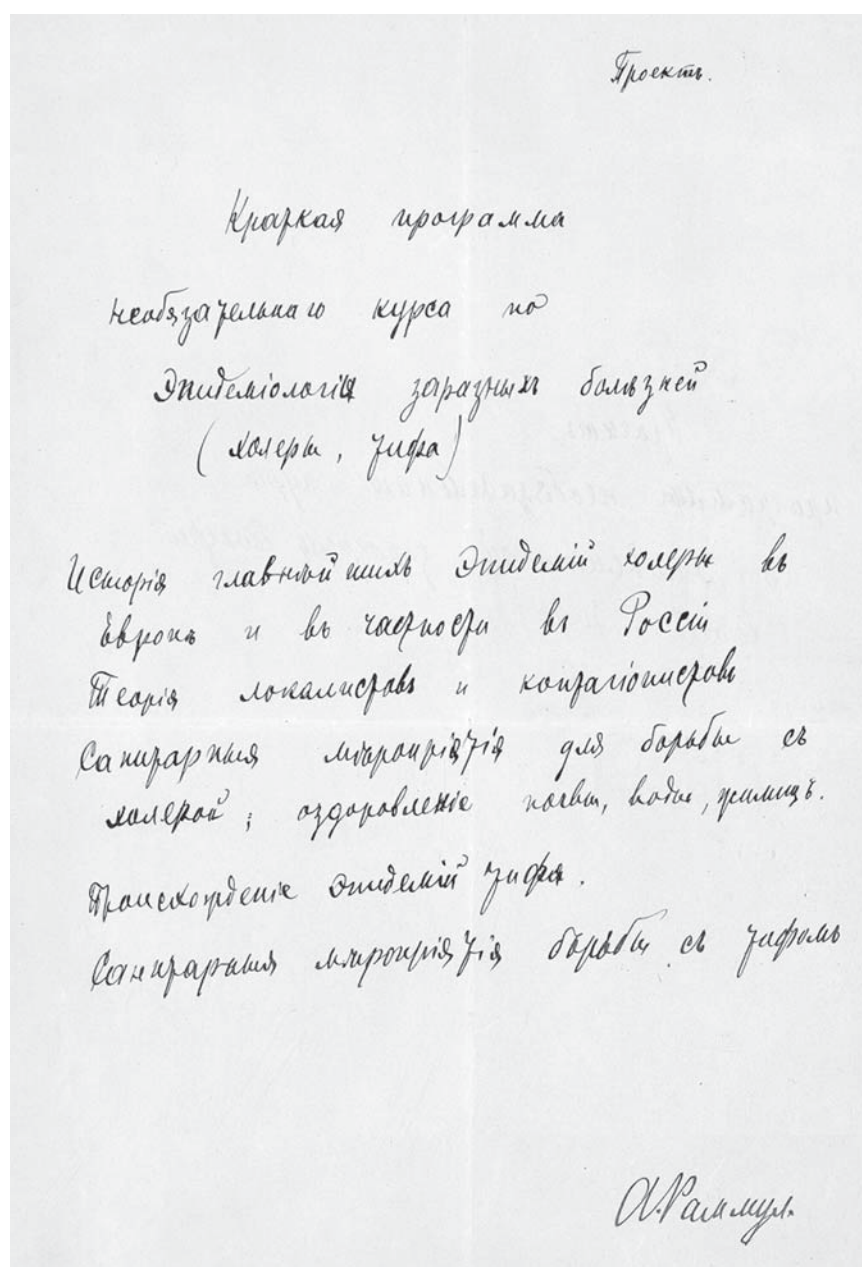 Проектъ.
Краткая программа
необязательнаго курса по
Эпидеміологіи заразныхъ болѣзней
(холеры, тифа)
Исторія главнѣйшихъ Эпидемій холеры въ
Европѣ и въ частности въ Россіи
Теорія локалистовъ и контагіонистовъ
Санитарныя мѣропріятія для борьбы съ
холерой; оздоровленіе почвы, воды, жилищъ.
Происхожденіе Эпидемій тифа.
Санитарныя мѣропріятія борьбы съ тифомъ
А. Раммул.